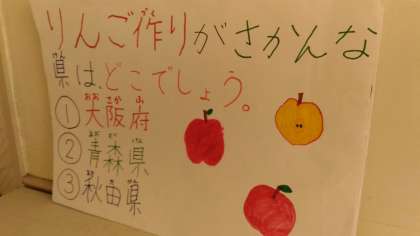 りんご作りがさかんな
県は、どこでしょう。
①大阪府
②青森県
③秋田県